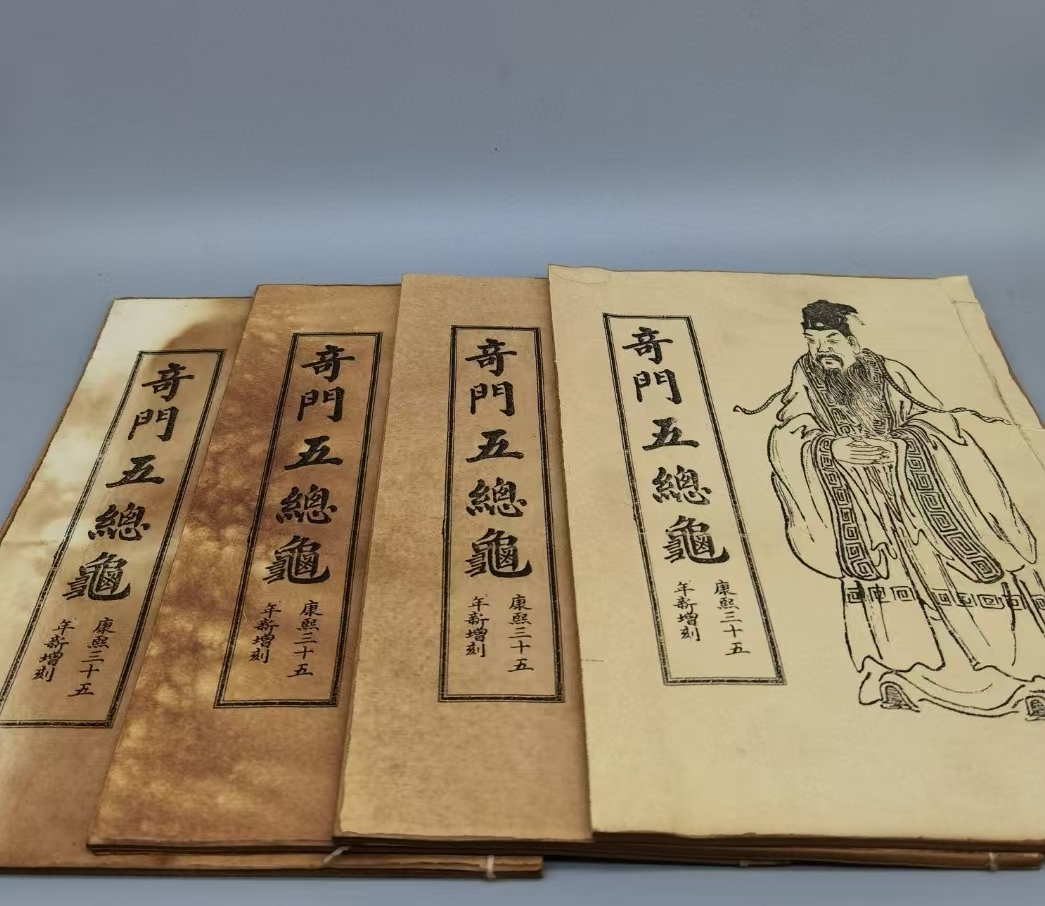 奇門五總龜
康熙三十五
年新增刻
奇門五總龜
康熙三十五
年新增刻
奇門五總龜
康熙三十五
年新增刻
奇門五總龜
康熙三十五
年新增刻